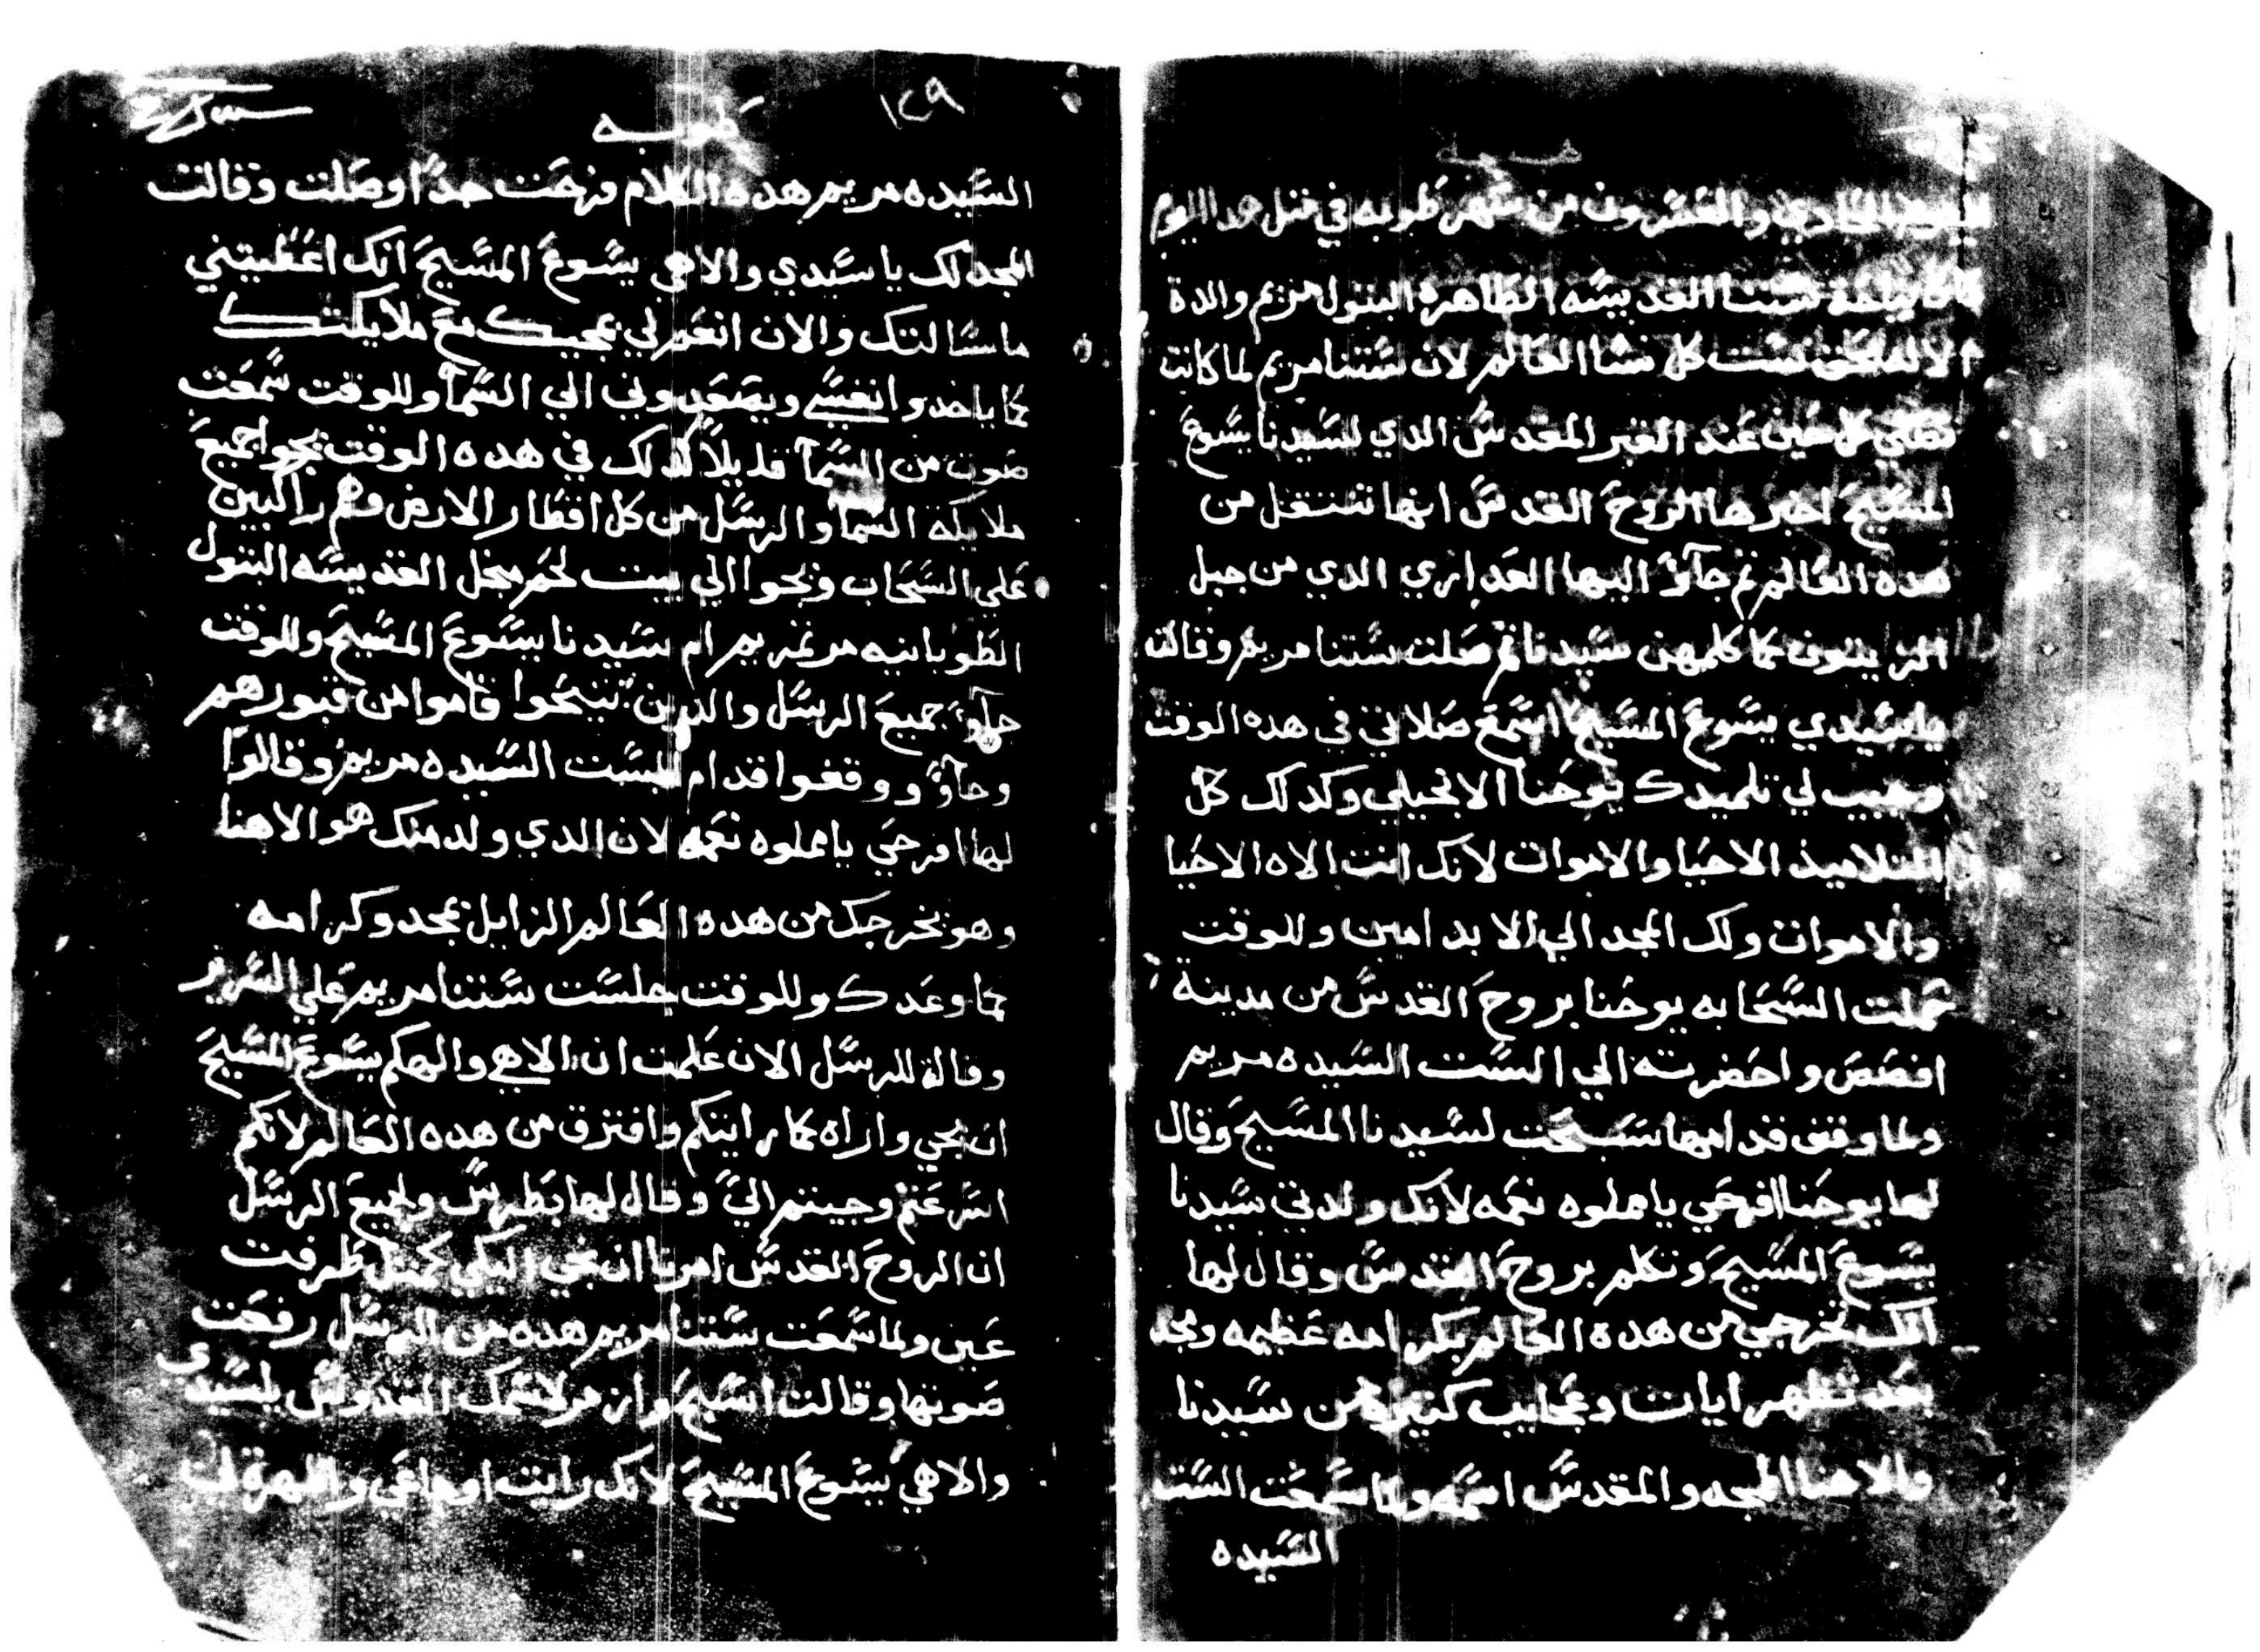 طوبه
اليوم الحادي والعشرون من شهر طوبه في متل هدا اليوم
كان نياحة ستنا القديسه الطاهره البتول مريم والدة
الاله ست كل نسا العالم لان ستنا مريم لما كانت
تصلي كل حين عند القبر المقدس الدي لسيدنا يسوع
المسيح اخبرها الروح القدس انها تنتقل من
هده العالم تم جآوُ اليها العداري الدي من جبل
الزيتون كما كلمهن سيدنا تم صلت ستنا مريم وقالت
يا سيدي يسوع المسيح اسمع صلاتي في هده الوقت
وجيب لي تلميدك يوحنا الانجيلي وكدلك كل
التلاميذ الاحيا والاموات لانك انت الاه الاحيا
والاموات ولك المجد الي الابد امين وللوقت
حملت السحابه يوحنا بروح القدس من مدينة
افصص واحضرته الي الست السيده مريم
ولما وقف قدامها سبحت لسيدنا المسيح وقال
لها يوحنا افرحي يا مملوه نعمه لانك ولدتي سيدنا
يسوع المسيح وتكلم بروح القدس وقال لها
انك تخرجي من هده العالم بكرامه عظيمه ومجد
بعد تظهر ايات وعجايب كتيره من سيدنا
والاهنا الممجد والمقدس اسمه ولما سمعت الست
السيده
١٤٩
طوبه
السيده مريم هده الكلام فرحت جداً وصلت وقالت
المجد لك يا سيدي والاهي يسوع المسيح انك اعطيتني
ما سالتك والان انعم لي بمجيك مع ملايكتك
كما ياخدوا نفسي ويصعدوني الي السمآ وللوقت سمعت
صوت من السمآ قليلاً كدلك في هده الوقت يجوا جميع
ملايكة السمآ والرسل من كل اقطار الارض وهم راكبين
علي السحاب ويجوا الي بيت لحم من اجل القديسه البتول
الطوبانيه مرتمريم ام سيدنا يسوع المسيح وللوقت
جآوُ جميع الرسل والدين تنيحوا قاموا من قبورهم
وجآوُ ووقفوا قدام الست السيده مريم وقالوا
لها افرحي يا مملوه نعمه لان الدي ولد منك هو الاهنا
وهو يخرجك من هده العالم الزايل بمجد وكرامه
كما وعدك وللوقت جلست ستنا مريم علي السرير
وقالة للرسل الان علمت ان الاهي والهكم يسوع المسيح
ان يجي واراه كما رايتكم وافترق من هده العالم لانكم
اسرعتم وجيتم اليَّ وقال لها بطرس وجميع الرسل
ان الروح القدس امرنا ان نجي اليكي كمتل طرفت
عين ولما سمعت ستنا مريم هده من الرسل رفعت
صوتها وقالت اسبح وارمر لاسمك القدوس يا سيدي
والاهي يسوع المسيح لانك رايت